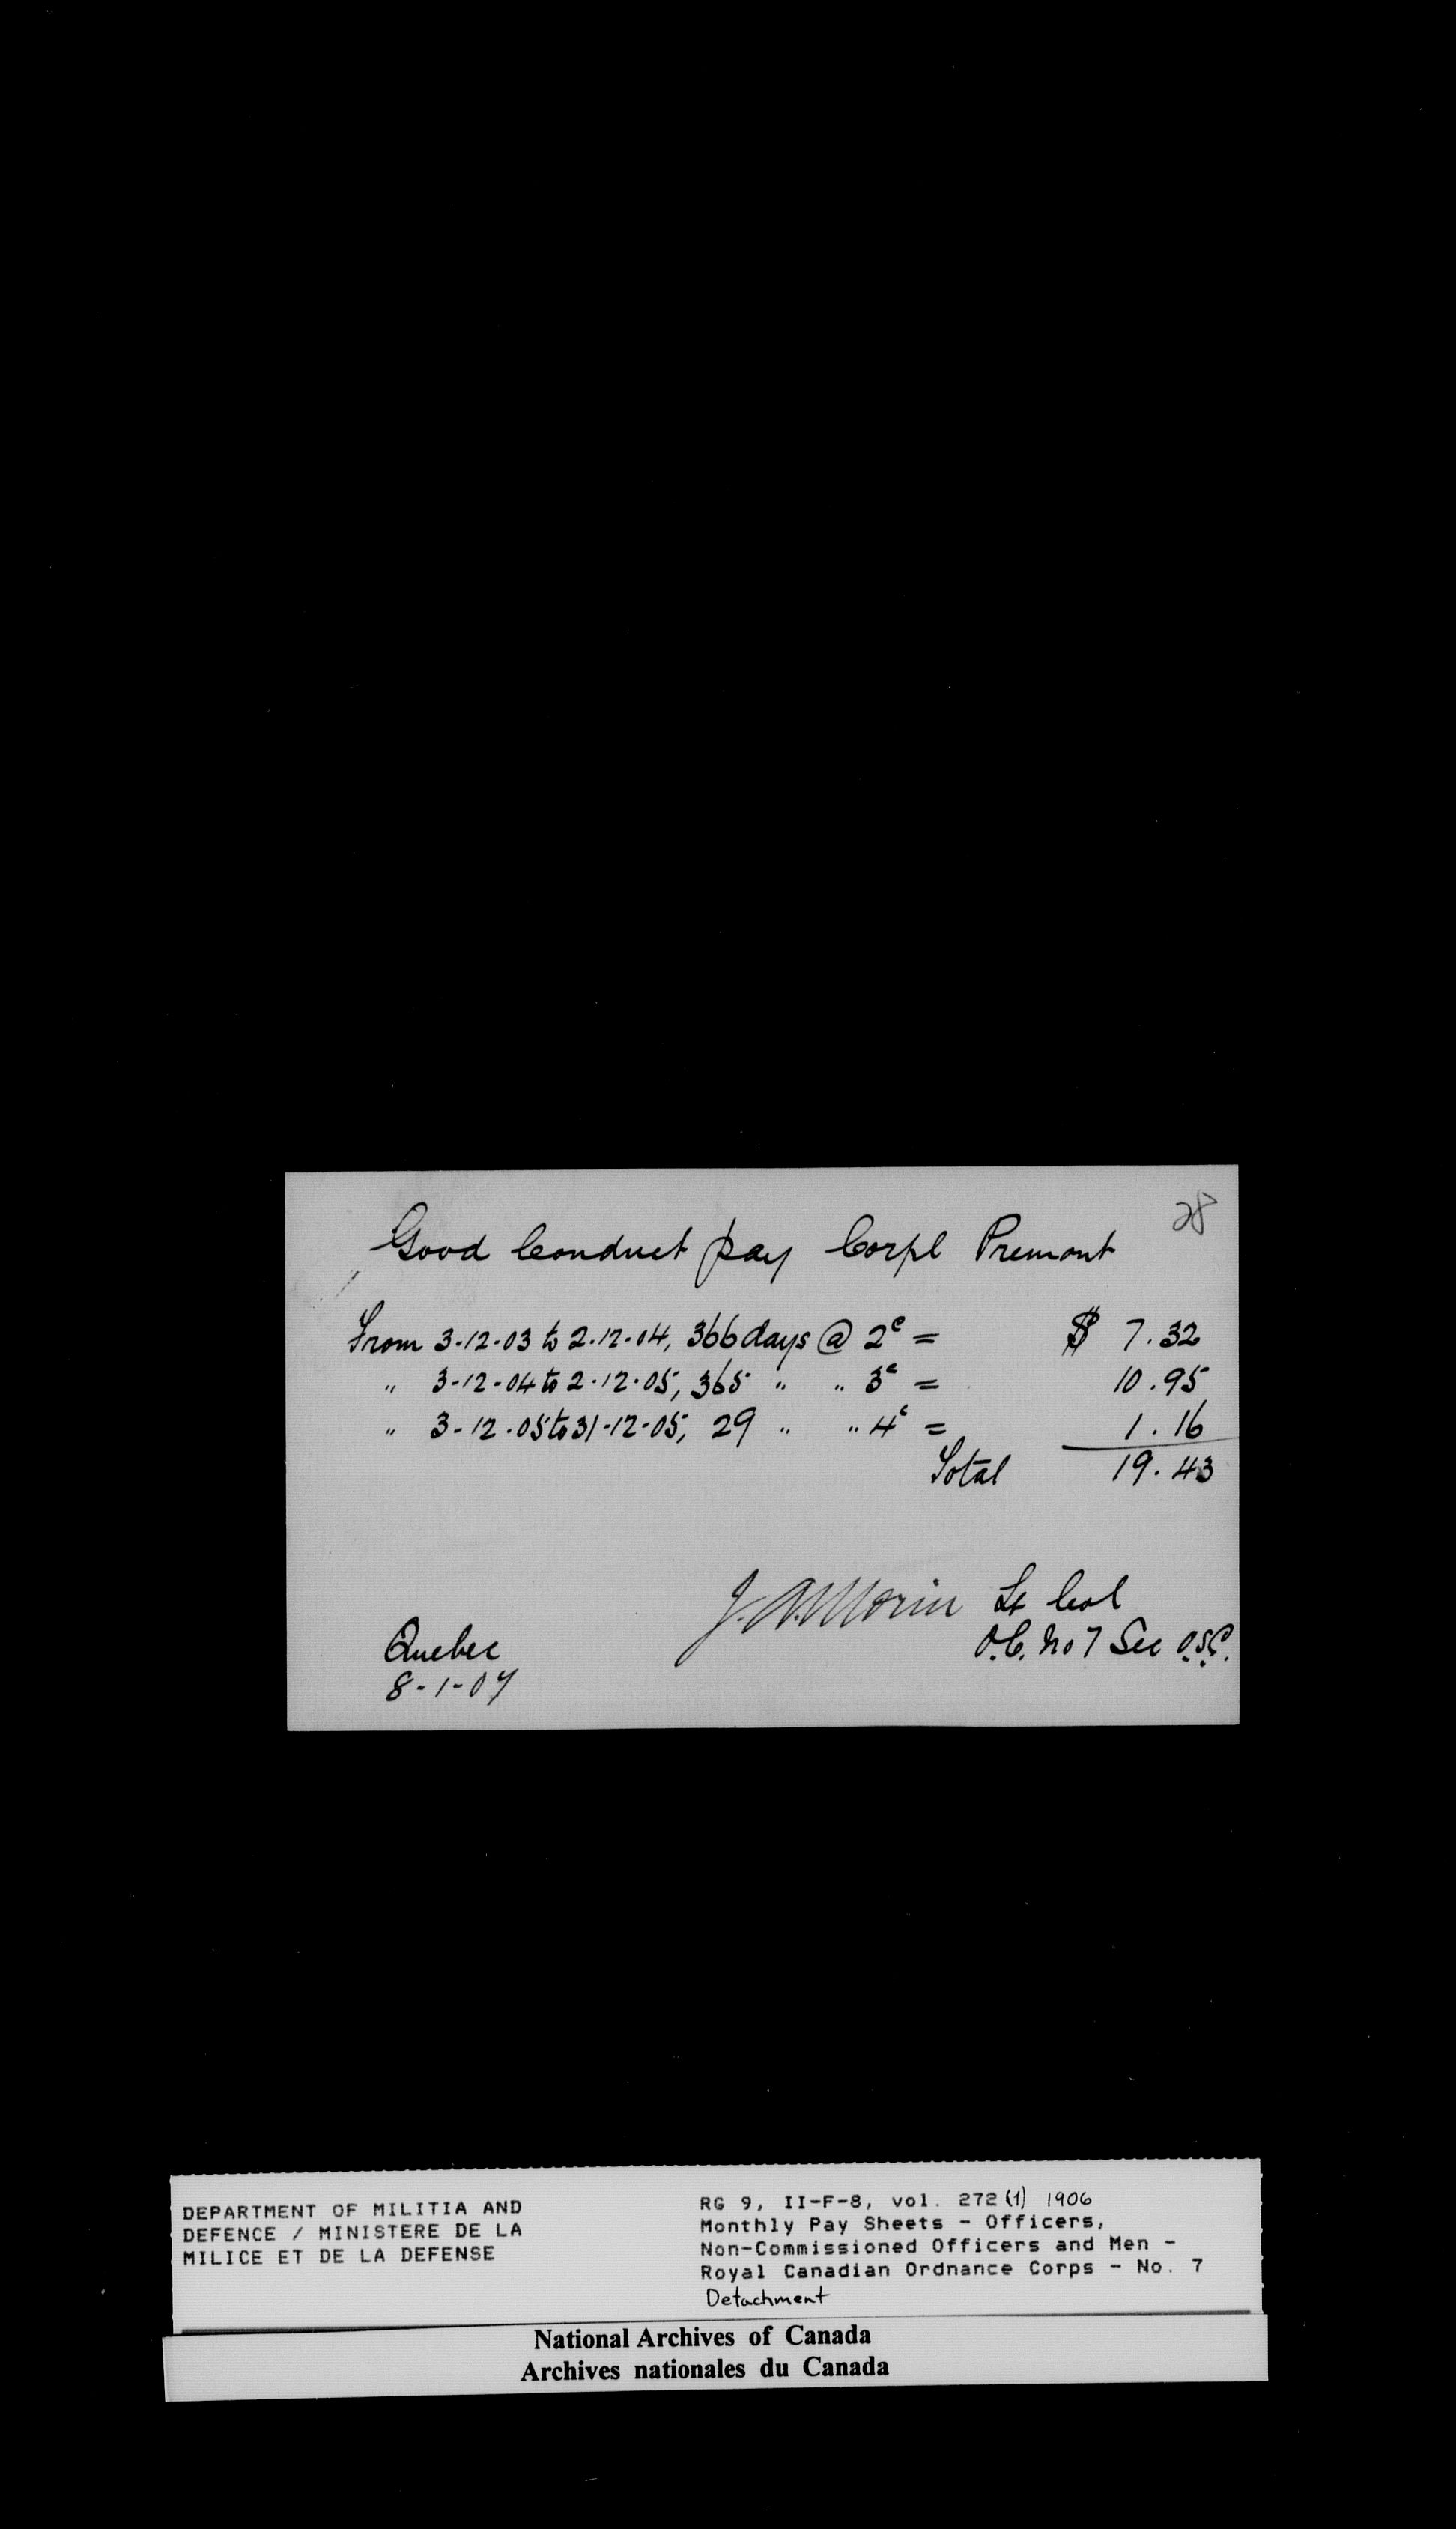 28
Good Conduct pay Corpl Premont
From 3-12-03 to 2-12-04, 366 days @ 2c = $ 7.32
" 3-12-04 to 2-12-05, 365 " " 3c = 10.95
" 3-12-05 to 31-12-05, 29 " " 4c = 1.16
Total 19.43
J. A. Morin Lt Col
O.C. No 7 Sec O.S.C.
Quebec
8-1-07
DEPARTMENT OF MILITIA AND
DEFENCE / MINISTERE DE LA
MILICE ET DE LA DEFENSE
RG 9, II-F-8, vol. 272 (1) 1906
Monthly Pay Sheets - Officers,
Non-Commissioned Officers and Men -
Royal Canadian Ordnance Corps - No. 7
Detachment
National Archives of Canada
Archives nationales du Canada